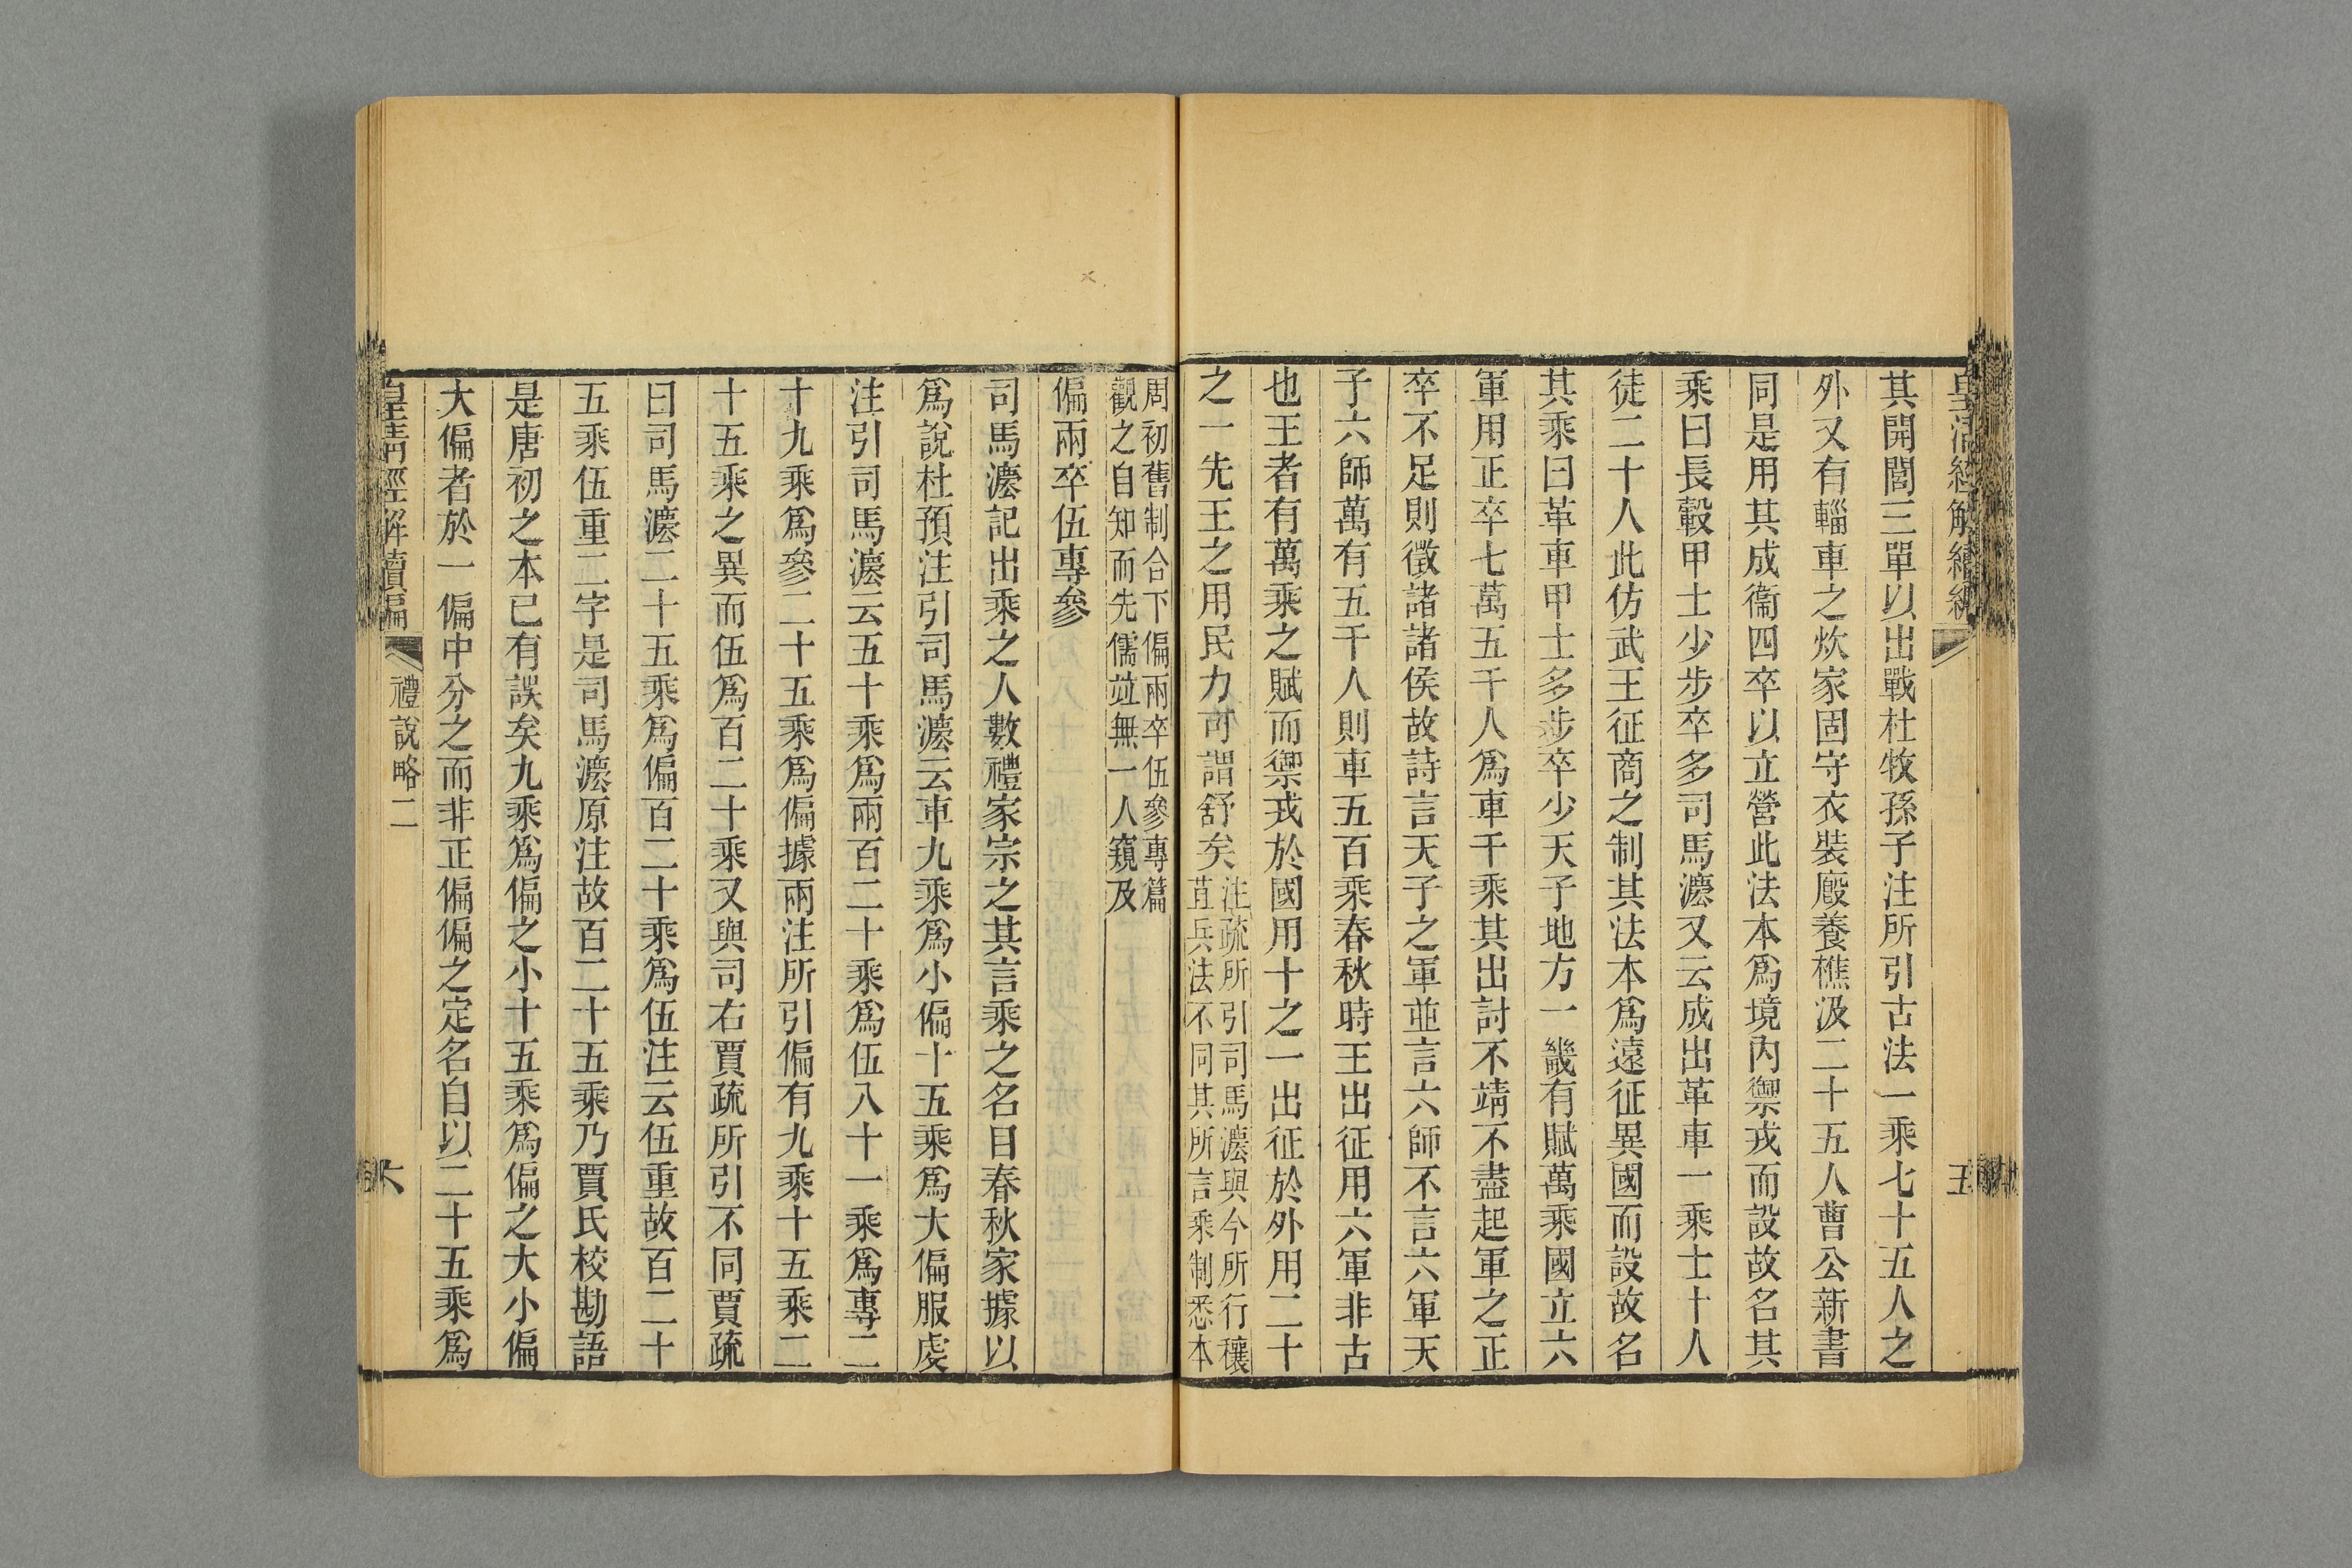 皇清經解續編
五
其開闔三單以出戰杜牧孫子注所引古法一乘七十五人之
外又有輜車之炊家固守衣裝廏養樵汲二十五人曹公新書
同是用其成衞四卒以立營此法本爲境內禦戎而設故名其
乘曰長轂甲士少步卒多司馬灋又云成出革車一乘士十人
徒二十人此仿武王征商之制其法本爲遠征異國而設故名
其乘曰革車甲士多步卒少天子地方一畿有賦萬乘國立六
軍用正卒七萬五千人爲車千乘其出討不靖不盡起軍之正
卒不足則徵諸諸侯故詩言天子之軍並言六師不言六軍天
子六師萬有五千人則車五百乘春秋時王出征用六軍非古
也王者有萬乘之賦而禦戎於國用十之一出征於外用二十
之一先王之用民力可謂舒矣
注疏所引司馬灋與今所行穰
苴兵法不同其所言乘制悉本
周初舊制合下偏兩卒伍參專篇
觀之自知而先儒竝無一人窺及
偏兩卒伍專參
司馬灋記出乘之人數禮家宗之其言乘之名曰春秋家據以
爲說杜預注引司馬灋云車九乘爲小偏十五乘爲大偏服虔
注引司馬灋云五十乘爲兩百二十乘爲伍八十一乘爲專二
十九乘爲參二十五乘爲偏據兩注所引偏有九乘十五乘二
十五乘之異而伍爲百二十乘又與司右賈疏所引不同賈疏
曰司馬灋二十五乘爲偏百二十乘爲伍注云伍重故百二十
五乘伍重二字是司馬灋原注故百二十五乘乃賈氏校勘語
是唐初之本已有誤矣九乘爲偏之小十五乘爲偏之大小偏
大偏者於一偏中分之而非正偏偏之定名自以二十五乘爲
皇清經解續編
禮說略二
六